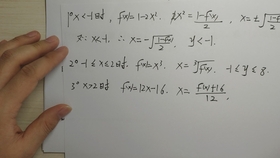 1° x<-1时, f(x)=1-2x². x²=\frac{1-f(x)}{2}, x=±\sqrt{\frac{1-f(x)}{2}}
∵ x<-1. ∴ x=-\sqrt{\frac{1-f(x)}{2}}, y<-1.
2° -1≤x≤2时, f(x)=x³. x=\sqrt[3]{f(x)}. -1≤y≤8.
3° x>2时 f(x)=12x-16. x=\frac{f(x)+16}{12}.